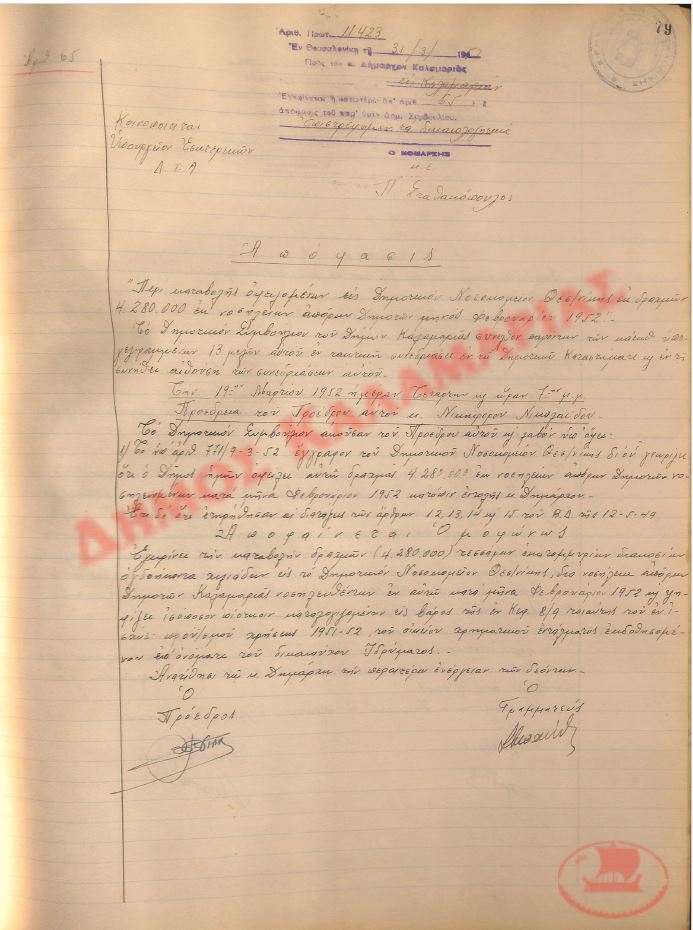 79
Ἀριθ. 65
Ἀριθ. Πρωτ. 11423
Ἐν Θεσσαλονίκῃ τῇ 31/3/1952
Πρὸς τὸν κ. Δήμαρχον Καλαμαριᾶς
εἰς Καλαμαριάν
Ἐγκρίνεται ἡ κατωτέρω ὑπ' ἀριθ. 65
ἀπόφασις τοῦ παρ' ὑμῖν Δημ. Συμβουλίου.
Ἐπιστρέφομεν τὰ δικαιολογητικά
Ὁ ΝΟΜΑΡΧΗΣ
Π. Σταθακόπουλος
Κοινοποιεῖται
Ὑπουργεῖον Ἐσωτερικῶν
Δ.Τ.Α
Ἀπόφασις
"Περὶ καταβολῆς ὀφειλομένων εἰς Δημοτικὸν Νοσοκομεῖον Θεσ/νίκης ἐκ δραχμῶν
4.280.000 ἐκ νοσηλείων ἀπόρων Δημοτῶν μηνὸς Φεβρουαρίου 1952".
Τὸ Δημοτικὸν Συμβούλιον τοῦ Δήμου Καλαμαριᾶς συνελθὸν παρόντων τῶν κάτωθι ὑπο-
γεγραμμένων 13 μελῶν αὐτοῦ ἐν τακτικῇ συνεδριάσει ἐν τῷ Δημοτικῷ Καταστήματι κ ἐν τῇ
συνήθει αἰθούσῃ τῶν συνεδριάσεων αὐτοῦ.
Τὴν 19ην Μαρτίου 1952 ἡμέραν Τετάρτην κ ὥραν 7ην μ.μ.
Προεδρεία τοῦ Προέδρου αὐτοῦ κ. Νικηφόρου Νικολαΐδου.
Τὸ Δημοτικὸν Συμβούλιον ἀκοῦσαν τοῦ Προέδρου αὐτοῦ κ λαβὸν ὑπ' ὄψει:
1) Τὸ ὑπ' ἀριθ. 771/9-3-52 ἔγγραφον τοῦ Δημοτικοῦ Νοσοκομείου Θεσ/νίκης δι' οὗ γνωρίζει
ὅτι ὁ Δῆμος ἡμῶν ὀφείλει αὐτῷ δραχμὰς 4.280.000 ἐκ νοσηλείων ἀπόρων Δημοτῶν νο-
σηλευομένων κατὰ μῆνα Φεβρουάριον 1952 κατόπιν ἐντολῆς κ. Δημάρχου.
Ἔτι δὲ ὅτι ἐτηρήθησαν αἱ διατάξεις τῶν ἄρθρων 12, 13, 14 κ 15 τοῦ Β.Δ. τῆς 12-5-49
Ἀποφαίνεται Ὁμοφώνως
Ἐγκρίνει τὴν καταβολὴν δραχμῶν (4.280.000) τεσσάρων ἑκατομμυρίων διακοσίων
ὀγδοήκοντα χιλιάδων εἰς τὸ Δημοτικὸν Νοσοκομεῖον Θεσ/νίκης, διὰ νοσήλεια ἀπόρων
Δημοτῶν Καλαμαριᾶς νοσηλευθέντων ἐν αὐτῷ κατὰ μῆνα Φεβρουάριον 1952 κ ψη-
φίζει ἰσόποσον πίστωσιν καταλογιζομένην εἰς βάρος τῆς ἐν Κεφ. 8/9 τοιαύτης τοῦ ἐν ἰσ-
χύϊ προϋ/σμοῦ χρήσεως 1951-52, τοῦ οἰκείου χρηματικοῦ ἐντάλματος ἐκδοθησομέ-
νου ἐπ' ὀνόματι τοῦ δικαιούχου Ἱδρύματος.-
Ἀνατίθησι τῷ κ. Δημάρχῳ τὴν περαιτέρω ἐνέργειαν τῶν δεόντων.-
Ὁ
Πρόεδρος
Ὁ
Γραμματεύς
ΔΗΜΟΣ ΚΑΛΑΜΑΡΙΑΣ